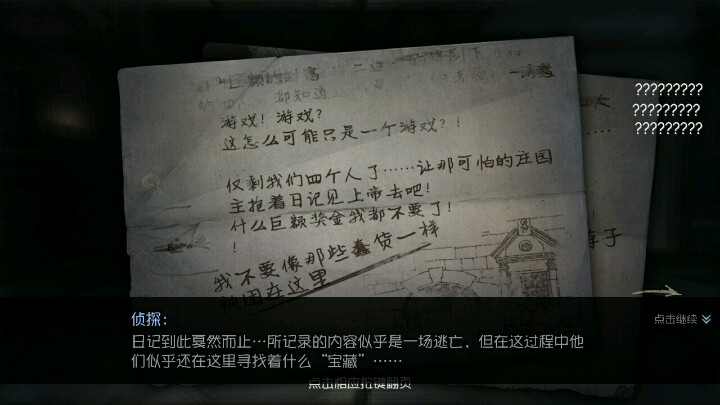 游戏！游戏？
这怎么可能只是一个游戏？！
仅剩我们四个人了……让那可怕的庄园
主抱着日记见上帝去吧！
什么巨额奖金我都不要了！
！
我不要像那些蠢货一样
被困在这里
?????????
?????????
?????????
侦探：
日记到此戛然而止…所记录的内容似乎是一场逃亡，但在这过程中他
们似乎还在这里寻找着什么“宝藏”……
点击继续
点击相应按键翻页